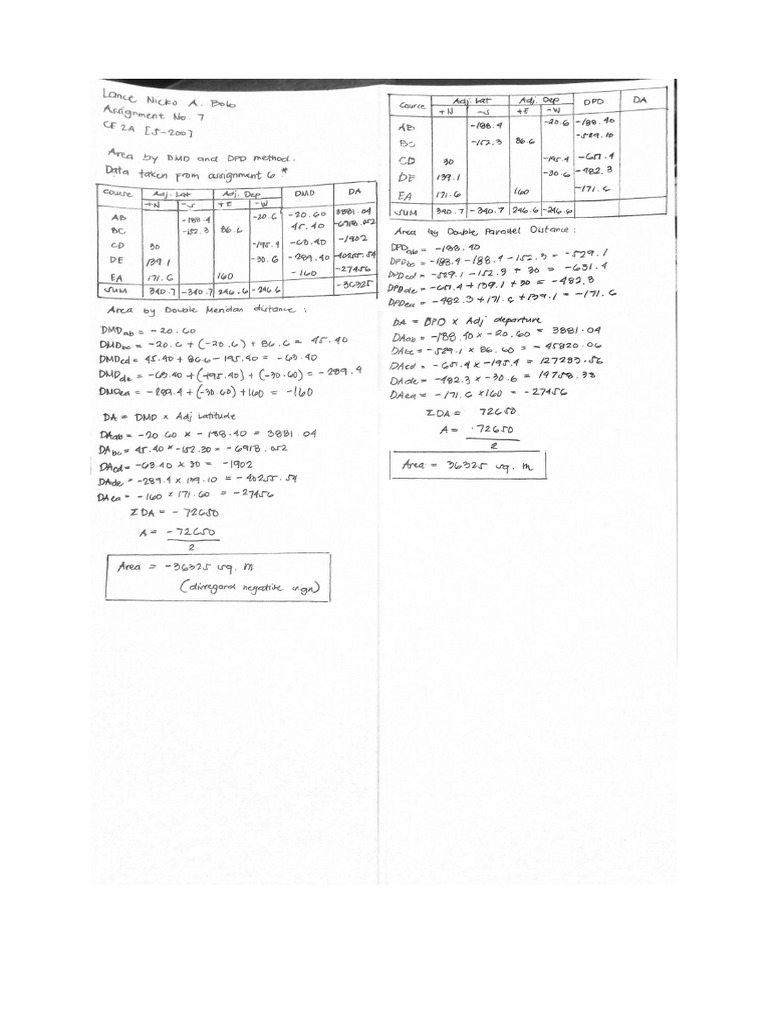 Lance Nicko A. Bolo
Assignment No. 7
CE 2A [S-200]
Area by DMD and DPD method.
Data taken from assignment 6 *
Course Adj. Lat Adj. Dep DMD DA
+N -S +E -W
AB -188.4 -20.6 -20.60 3881.04
BC -152.3 86.6 45.40 -6918.052
CD 30 -195.4 -63.40 -1902
DE 139.1 -30.6 -289.40 -40255.54
EA 171.6 160 -160 -27456
SUM 340.7 -340.7 246.6 -246.6 -36325
Area by Double Meridian distance :
DMD ab = -20.60
DMD bc = -20.6 + (-20.6) + 86.6 = 45.40
DMD cd = 45.40 + 86.6 - 195.40 = -63.40
DMD de = -63.40 + (-195.40) + (-30.60) = -289.4
DMD ea = -289.4 + (-30.60) + 160 = -160
DA = DMD x Adj Latitude
DA ab = -20.60 x -188.40 = 3881.04
DA bc = 45.40 x -152.30 = -6918.052
DA cd = -63.40 x 30 = -1902
DA de = -289.4 x 139.10 = -40255.54
DA ea = -160 x 171.60 = -27456
Σ DA = -72650
A = -72650
2
Area = -36325 sq. m
(disregard negative sign)
Course Adj. Lat Adj. Dep DPD DA
+N -S +E -W
AB -188.4 -20.6 -188.40
BC -152.3 86.6 -529.10
CD 30 -195.4 -651.4
DE 139.1 -30.6 -482.3
EA 171.6 160 -171.6
SUM 340.7 -340.7 246.6 -246.6
Area by Double Parallel Distance :
DPD ab = -188.40
DPD bc = -188.4 - 188.4 - 152.3 = -529.1
DPD cd = -529.1 - 152.3 + 30 = -651.4
DPD de = -651.4 + 139.1 + 30 = -482.3
DPD ea = -482.3 + 171.6 + 139.1 = -171.6
DA = DPD x Adj departure
DA ab = -188.40 x -20.60 = 3881.04
DA bc = -529.1 x 86.60 = -45820.06
DA cd = -651.4 x -195.4 = 127283.56
DA de = -482.3 x -30.6 = 14758.38
DA ea = -171.6 x 160 = -27456
Σ DA = 72650
A = 72650
2
Area = 36325 sq. m